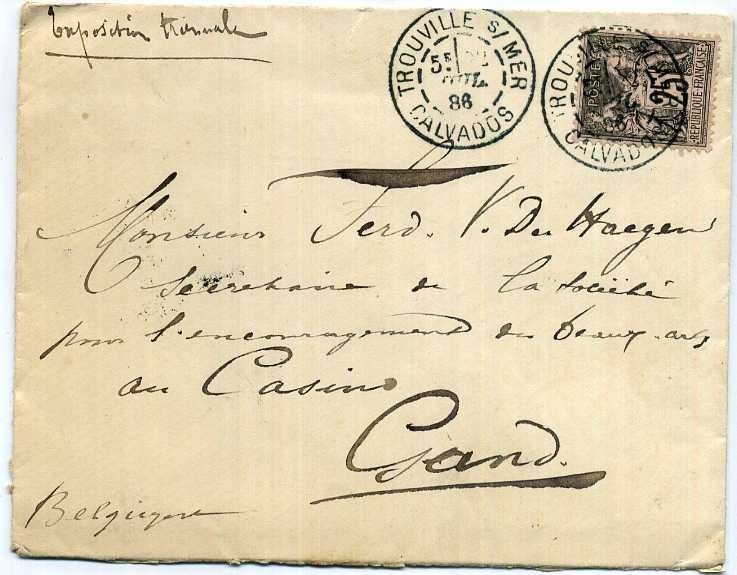 Exposition triennale
TROUVILLE S/MER
5E
JUIL.
86
CALVADOS
TROUVILLE S/MER
CALVADOS
POSTES
25
REPUBLIQUE FRANÇAISE
Monsieur Ferd. V. Der Haegen
Secretaire de la Société
pour l'encouragement des beaux-arts
au Casino
Gand.
Belgique